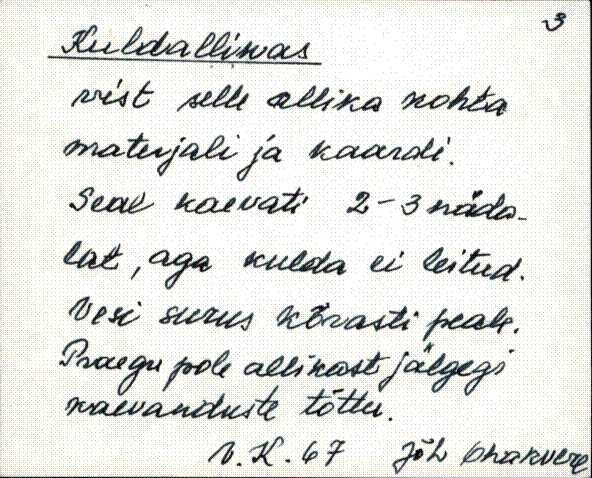 3
Kuldallikas
vist selle allika kohta
materjali ja kaardi.
Seal kaevati 2-3 näda-
lat, aga kulda ei leitud.
Vesi surus kõvasti peale.
Praegu pole allikast jälgegi
kaevanduste tõttu.
V. K. 67 Jõh Ohakvere